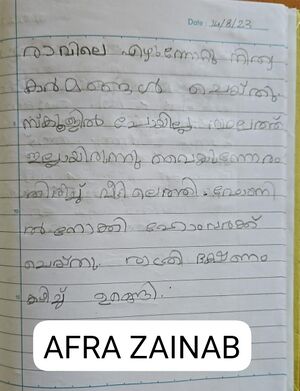 Date : 14/8/23
രാവിലെ എഴുന്നേറ്റു നിത്യ
കർമങ്ങൾ ചെയ്തു
സ്കൂളിൽ പോയില്ല
ഇല്ലായിരുന്നു വൈകുന്നേരം
തിരിച്ച് വീട്ടിലെത്തി. ഫോണി
ൽ നോക്കി ഹോംവർക്ക്
ചെയ്തു. രാത്രി ഭക്ഷണം
കഴിച്ച് ഉറങ്ങി.
AFRA ZAINAB